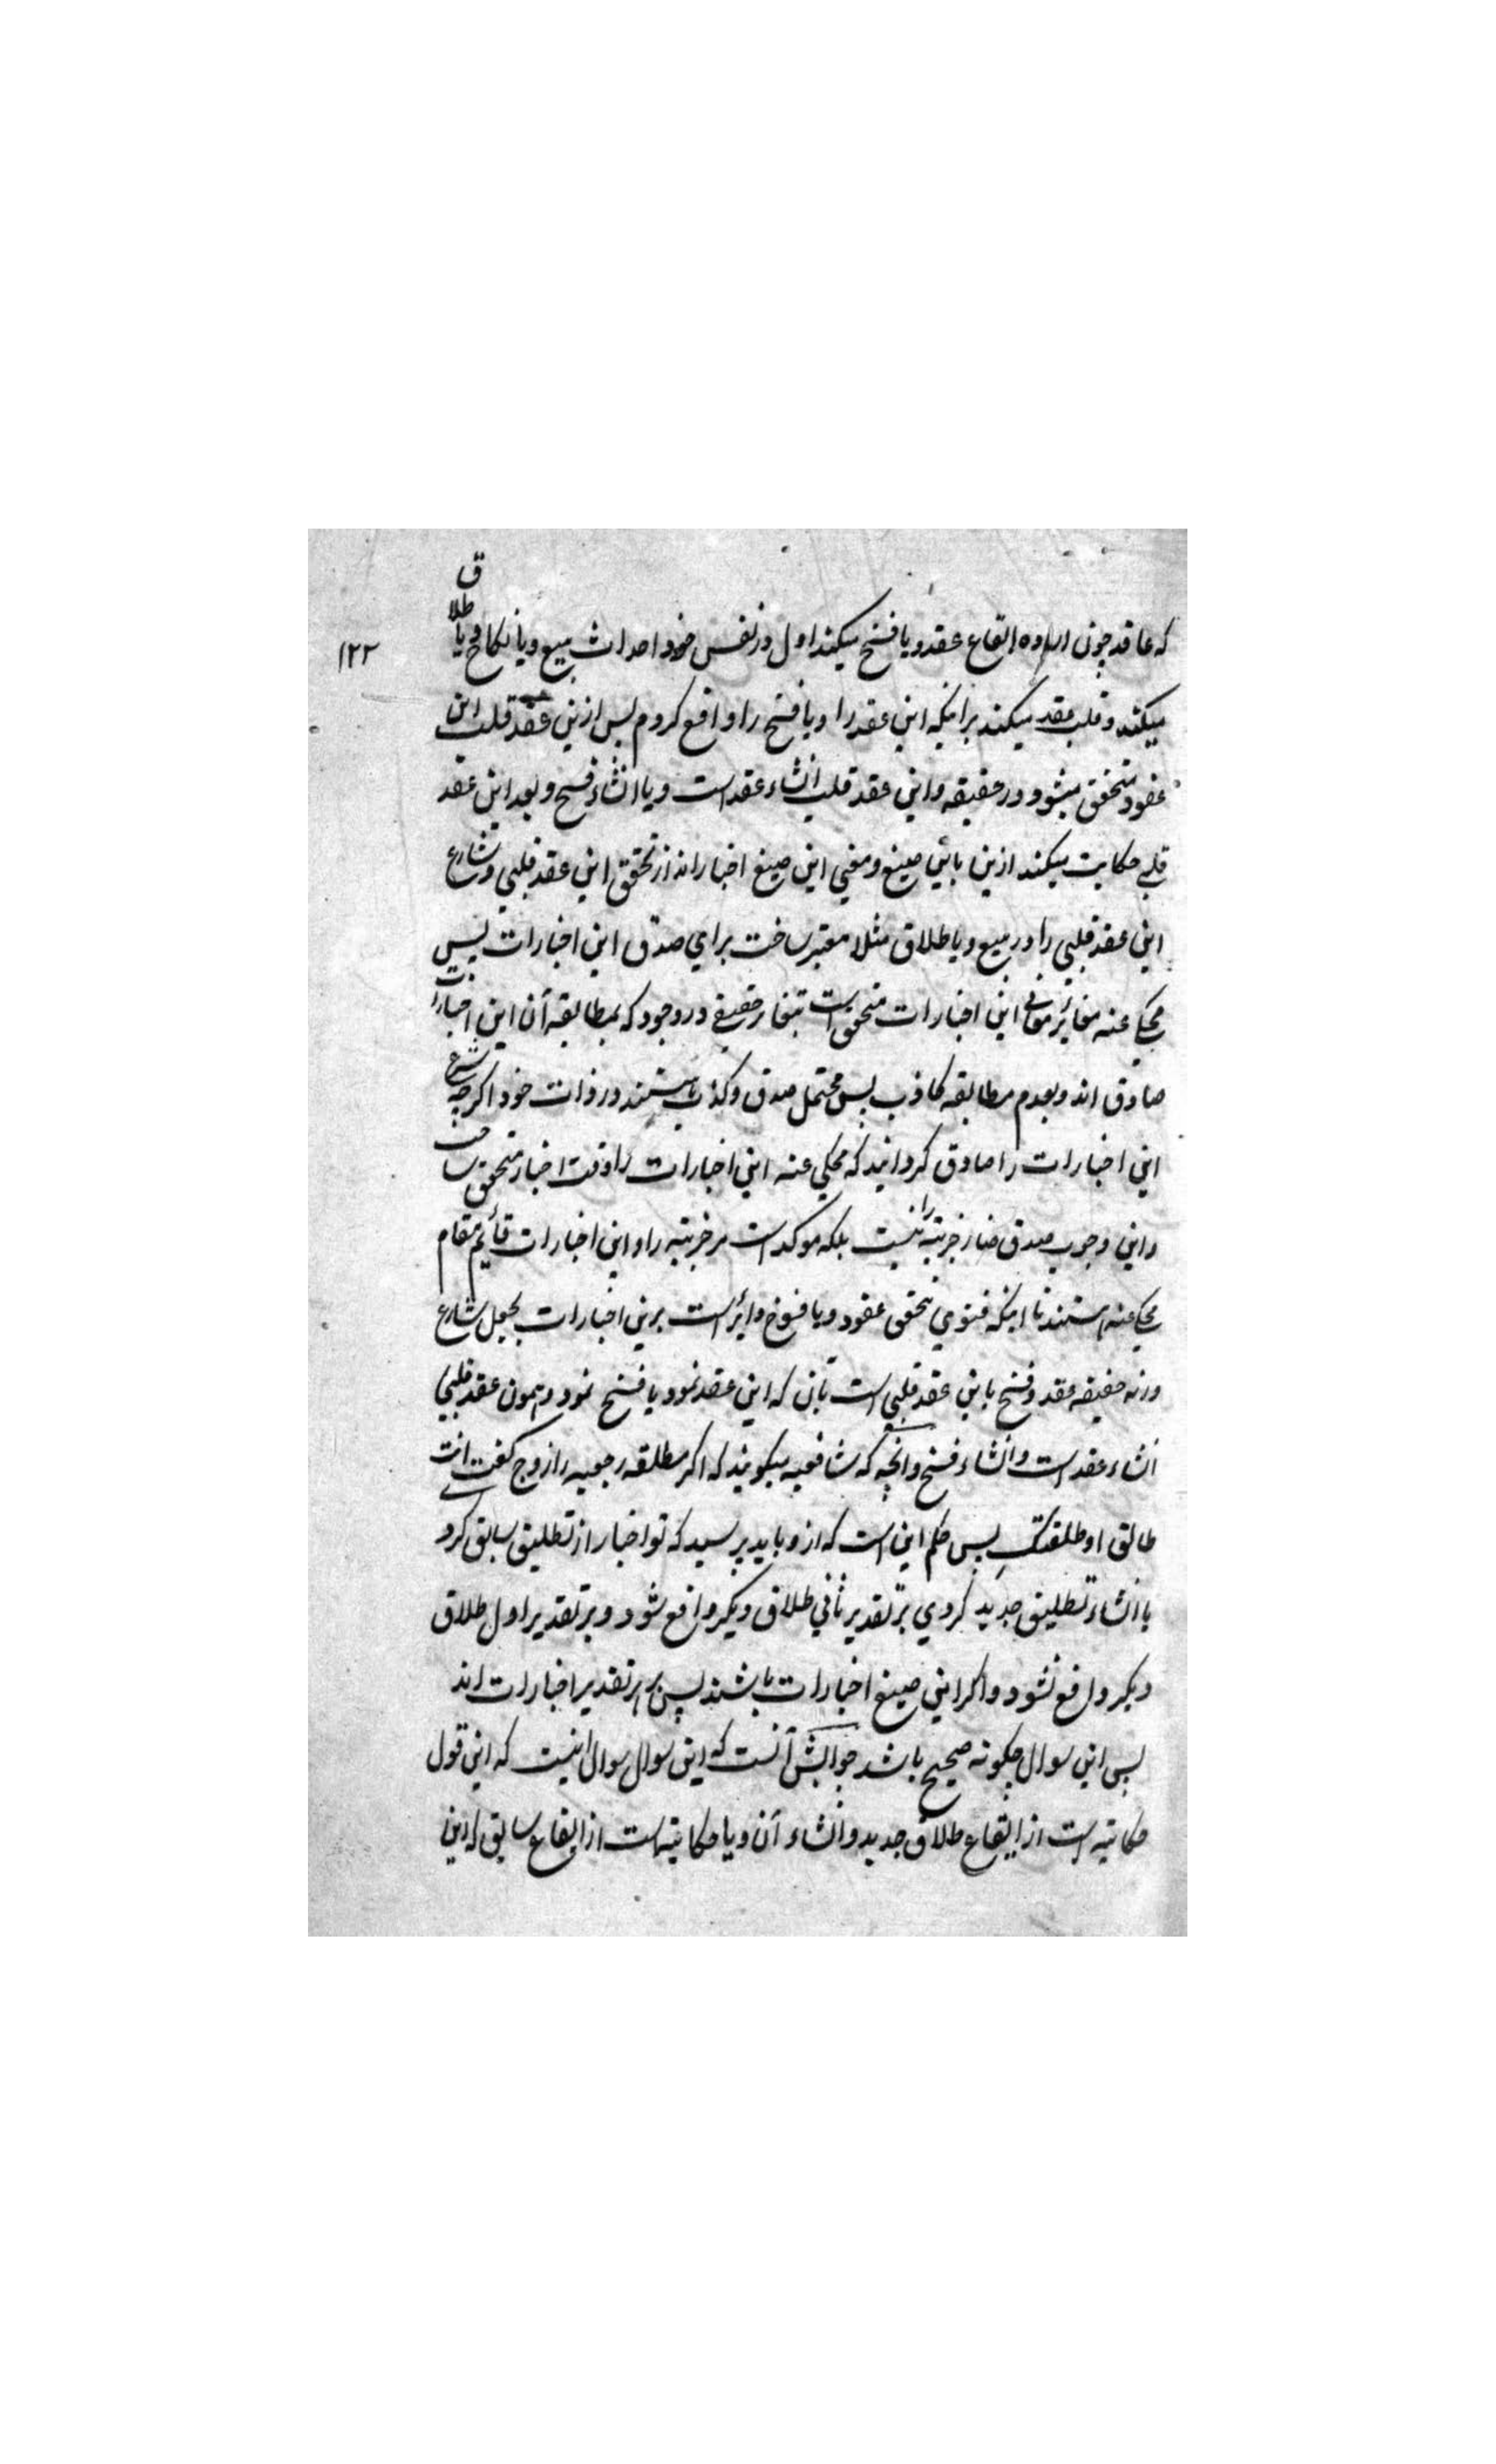 که عاقد چون اراده ایقاع عقد و یا فسخ میکند اول در نفس خود احداث بیع و یا نکاح و یا طلاق
۱۲۲
میکند و قلب عقد میکند برانکه این عقد را و یا فسخ را واقع کردم پس ازین عقد قلب این
عقود متحقق میشود در حقیقه و این عقد قلب انشاء عقد است و یا انشاء فسخ و بعد این عقد
قلبے حکایت میکند ازین باین صیغ و معنی این صیغ اخبار اند از تحقق این عقد قلبی و شارع
این عقد قلبی را در بیع و یا طلاق مثلا معتبر ساخت برای صدق این اخبارات پس
محکی عنه مغائر معانی این اخبارات متحقق است بتغایر حقیقی در وجود که بمطابقه آن این اخبارات
صادق اند و بعدم مطابقه کاذب پس محتمل صدق و کذب هستند در ذات خود اگرچه شرع
این اخبارات را صادق گردانید که محکی عنه این اخبارات را وقت اخبار متحقق ساخت
و این وجوب صدق ضار خبریته را نیست بلکه موکد است مر خبریته را و این اخبارات قائم مقام
محکی عنه هستند تا اینکه فتوی تحقق عقود و یا فسوخ دایر است برین اخبارات بجعل شارع
ورنه حقیقه عقد و فسخ باین عقد قلبی است بآن که این عقد نمود یا فسخ نمود و همون عقد قلبی
انشاء عقد است و انشاء فسخ و آنچه که شافعیه میگویند که اگر مطلقه رجعیه را زوج گفت انت
طالق او طلقتک پس حکم این است که ازو باید پرسید که تو اخبار از تطلیق سابق کرد
یا انشاء تطلیق جدید کردی بر تقدیر ثانی طلاق دیگر واقع شود و بر تقدیر اول طلاق
دیگر واقع نشود و اگر این صیغ اخبارات باشند پس بهر تقدیر اخبارات اند
پس این سوال چگونه صحیح باشد جوابش آنست که این سوال سوال اینست که این قول
حکایته است از ایقاع طلاق جدید و انشاء آن و یا حکایته است از ایقاع سابق که این